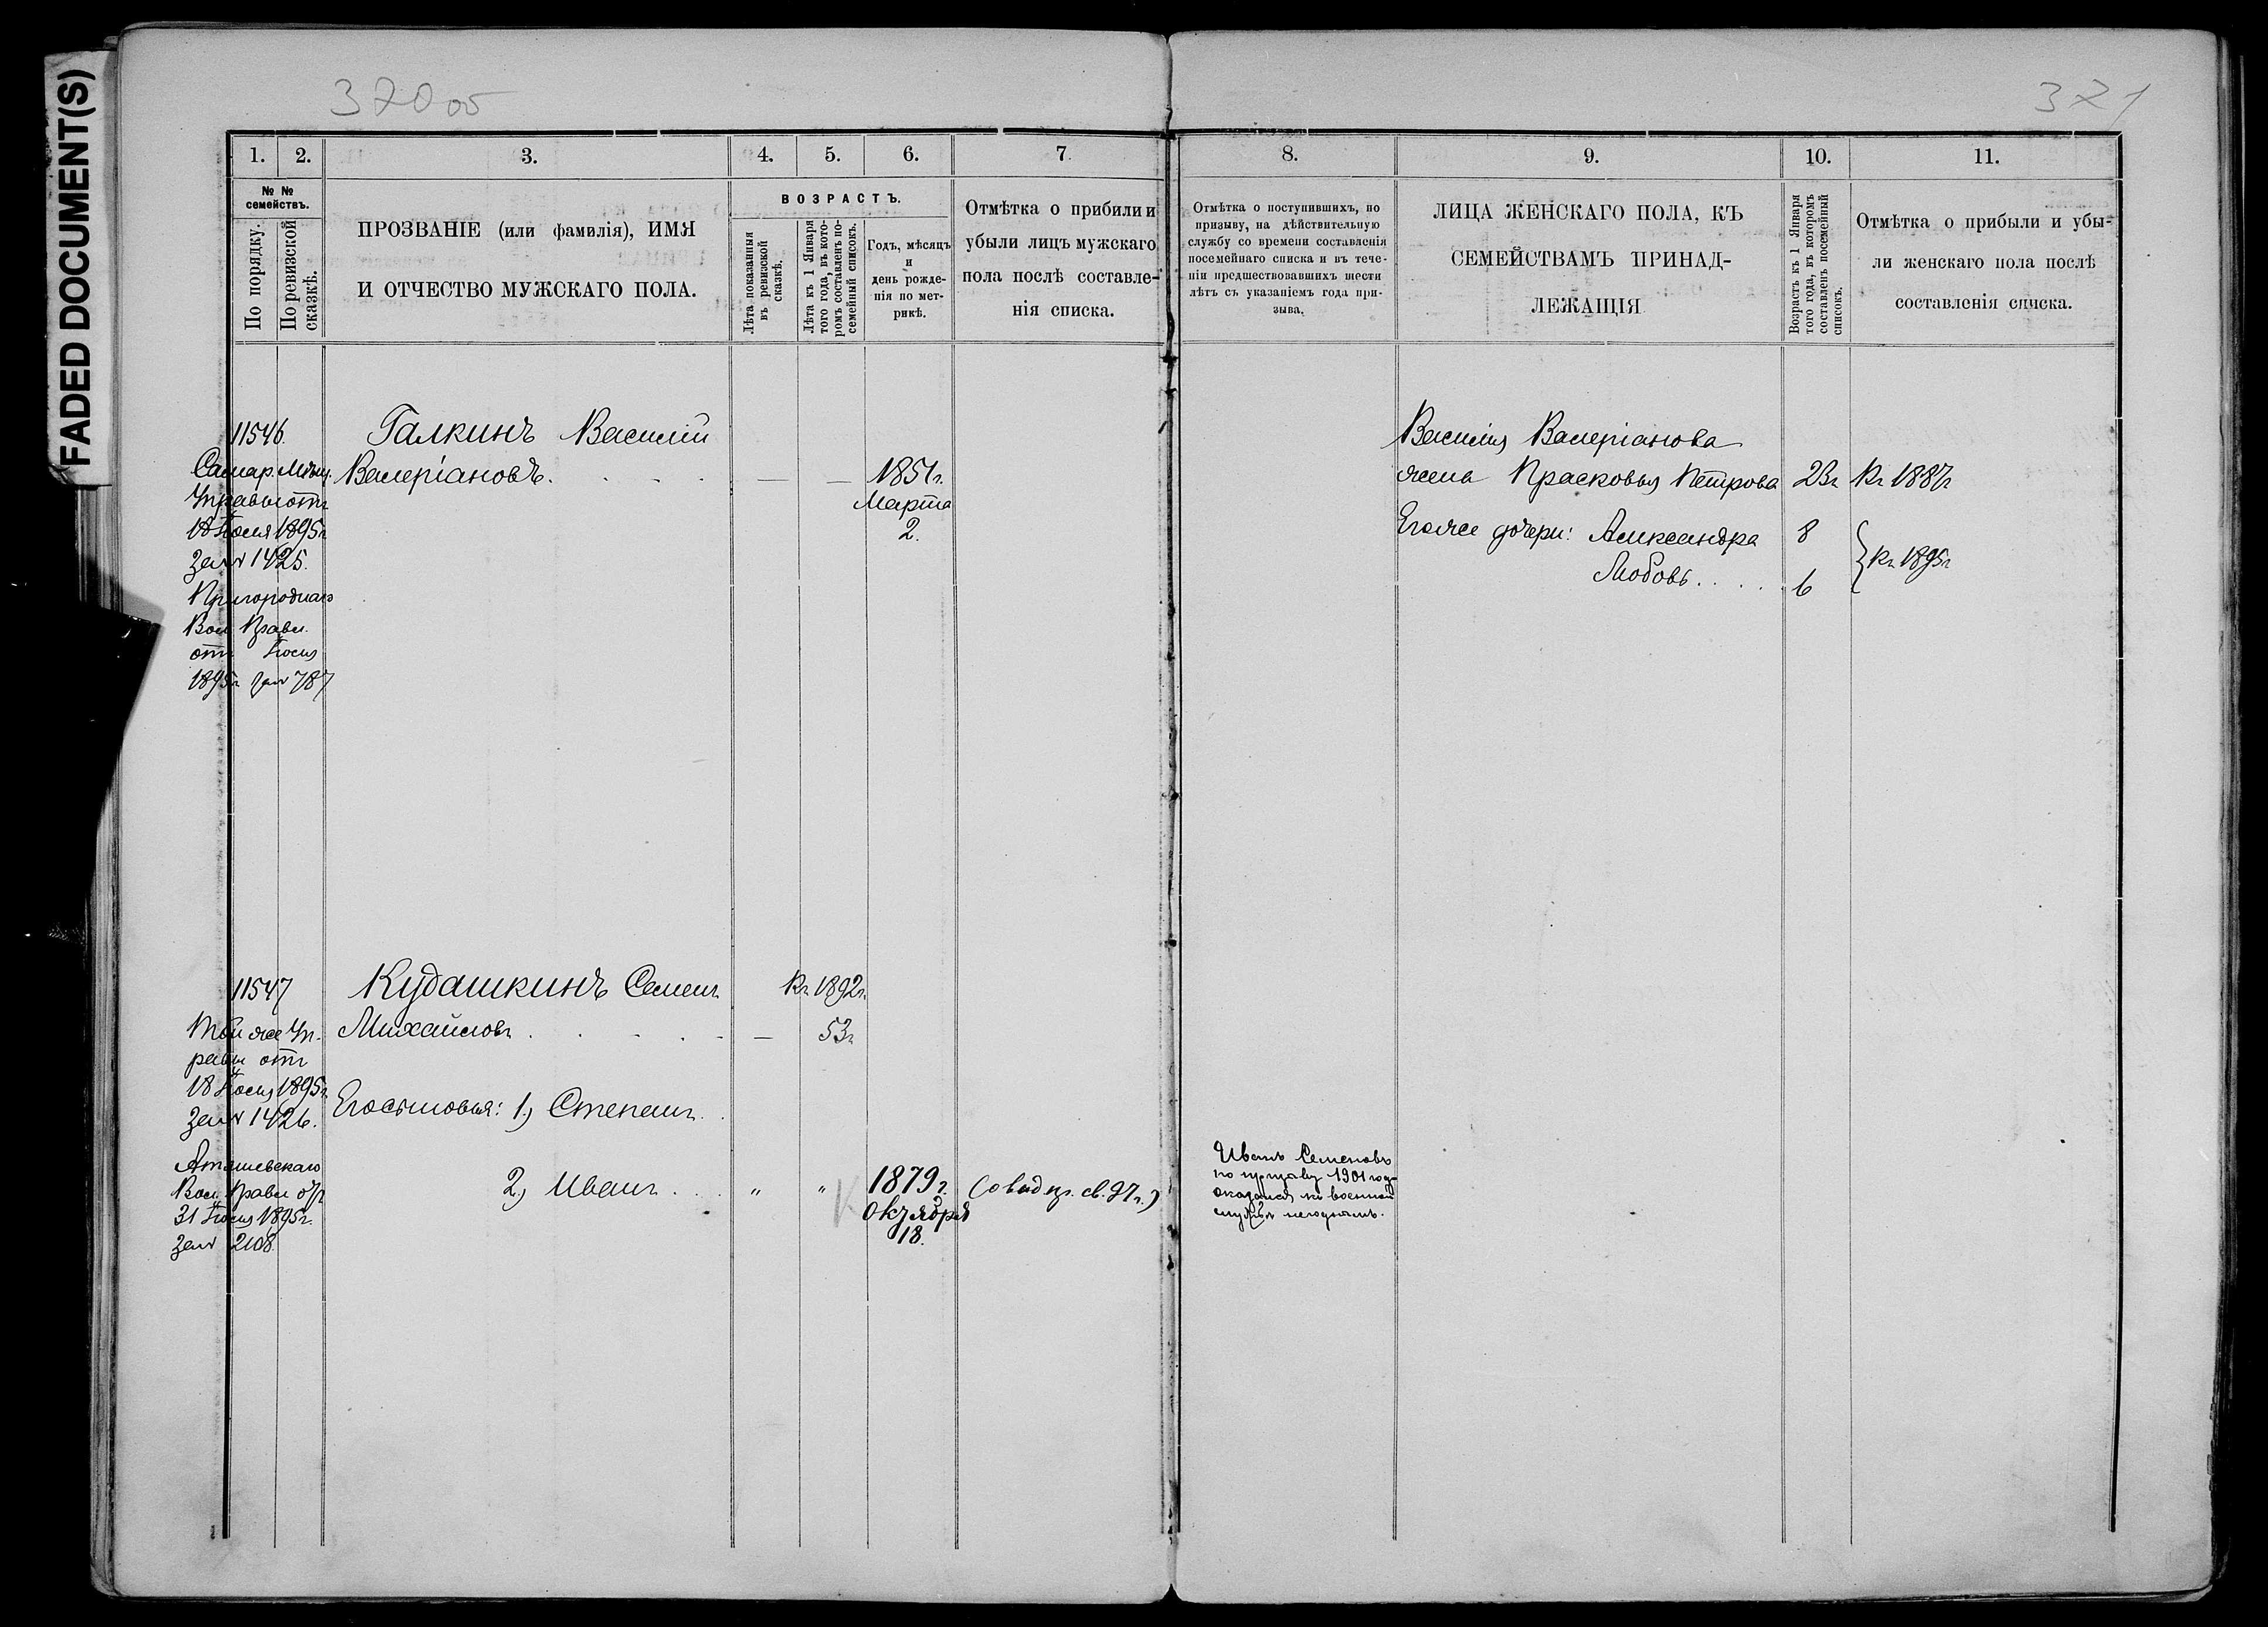 FADED DOCUMENT(S)
370 об
371
1. 2. 3. 4. 5. 6. 7.
№ № семействъ.
По порядку.
По ревизской сказкѣ.
ПРОЗВАНІЕ (или фамилія), ИМЯ
И ОТЧЕСТВО МУЖСКАГО ПОЛА.
ВОЗРАСТЪ.
Лѣта показанныя въ ревизской сказкѣ.
Лѣта къ 1 Января того года, въ которомъ составленъ посемейный списокъ.
Годъ, мѣсяцъ
и
день рожде-
нія по мет-
рикѣ.
Отмѣтка о прибыли и
убыли лицъ мужскаго
пола послѣ составле-
нія списка.
8. 9. 10. 11.
Отмѣтка о поступившихъ, по
призыву, на дѣйствительную
службу со времени составленія
посемейнаго списка и въ тече-
ніи предшествовавшихъ шести
лѣтъ съ указаніемъ года при-
зыва.
ЛИЦА ЖЕНСКАГО ПОЛА, КЪ
СЕМЕЙСТВАМЪ ПРИНАД-
ЛЕЖАЩІЯ
Возрастъ къ 1 Января того года, въ которомъ составленъ посемейный списокъ.
Отмѣтка о прибыли и убы-
ли женскаго пола послѣ
составленія списка.
11546.
Самар. Мѣщ.
Управы отъ
18 Іюля 1895г
за № 1425.
Пригороднаго
Вол Правл.
отъ Іюля
1895г за № 787
Галкинъ Василій
Валеріановъ. . . . — — 1851г.
Марта
2.
Василія Валеріанова
жена Прасковья Петрова 23г Къ 1887г
Его же дочери: Александра 8
Любовь. . . . 6
Къ 1895г
11547
Той же Уп-
равы отъ
18 Іюля 1895г
за № 1426.
Вол. Правл
31 Іюля 1895г.
за № 2108.
Кудашкинъ Семенъ Къ 1892г.
Михайловъ . . . . — 53г
Его сыновья: 1) Степанъ . .
2) Иванъ . . . " " 1879г.
Октября
18.
Иванъ Семеновъ
по призыву 1901 году
оказался къ военной
службѣ негоднымъ.